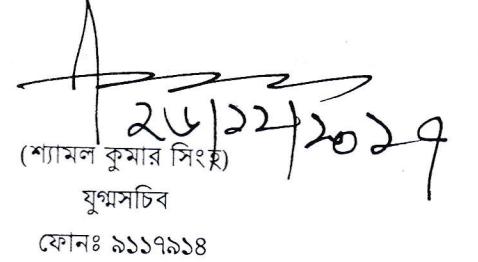 ২৬/১২/২০১৭
(শ্যামল কুমার সিংহ)
যুগ্মসচিব
ফোনঃ ৯১১৭৯১৪